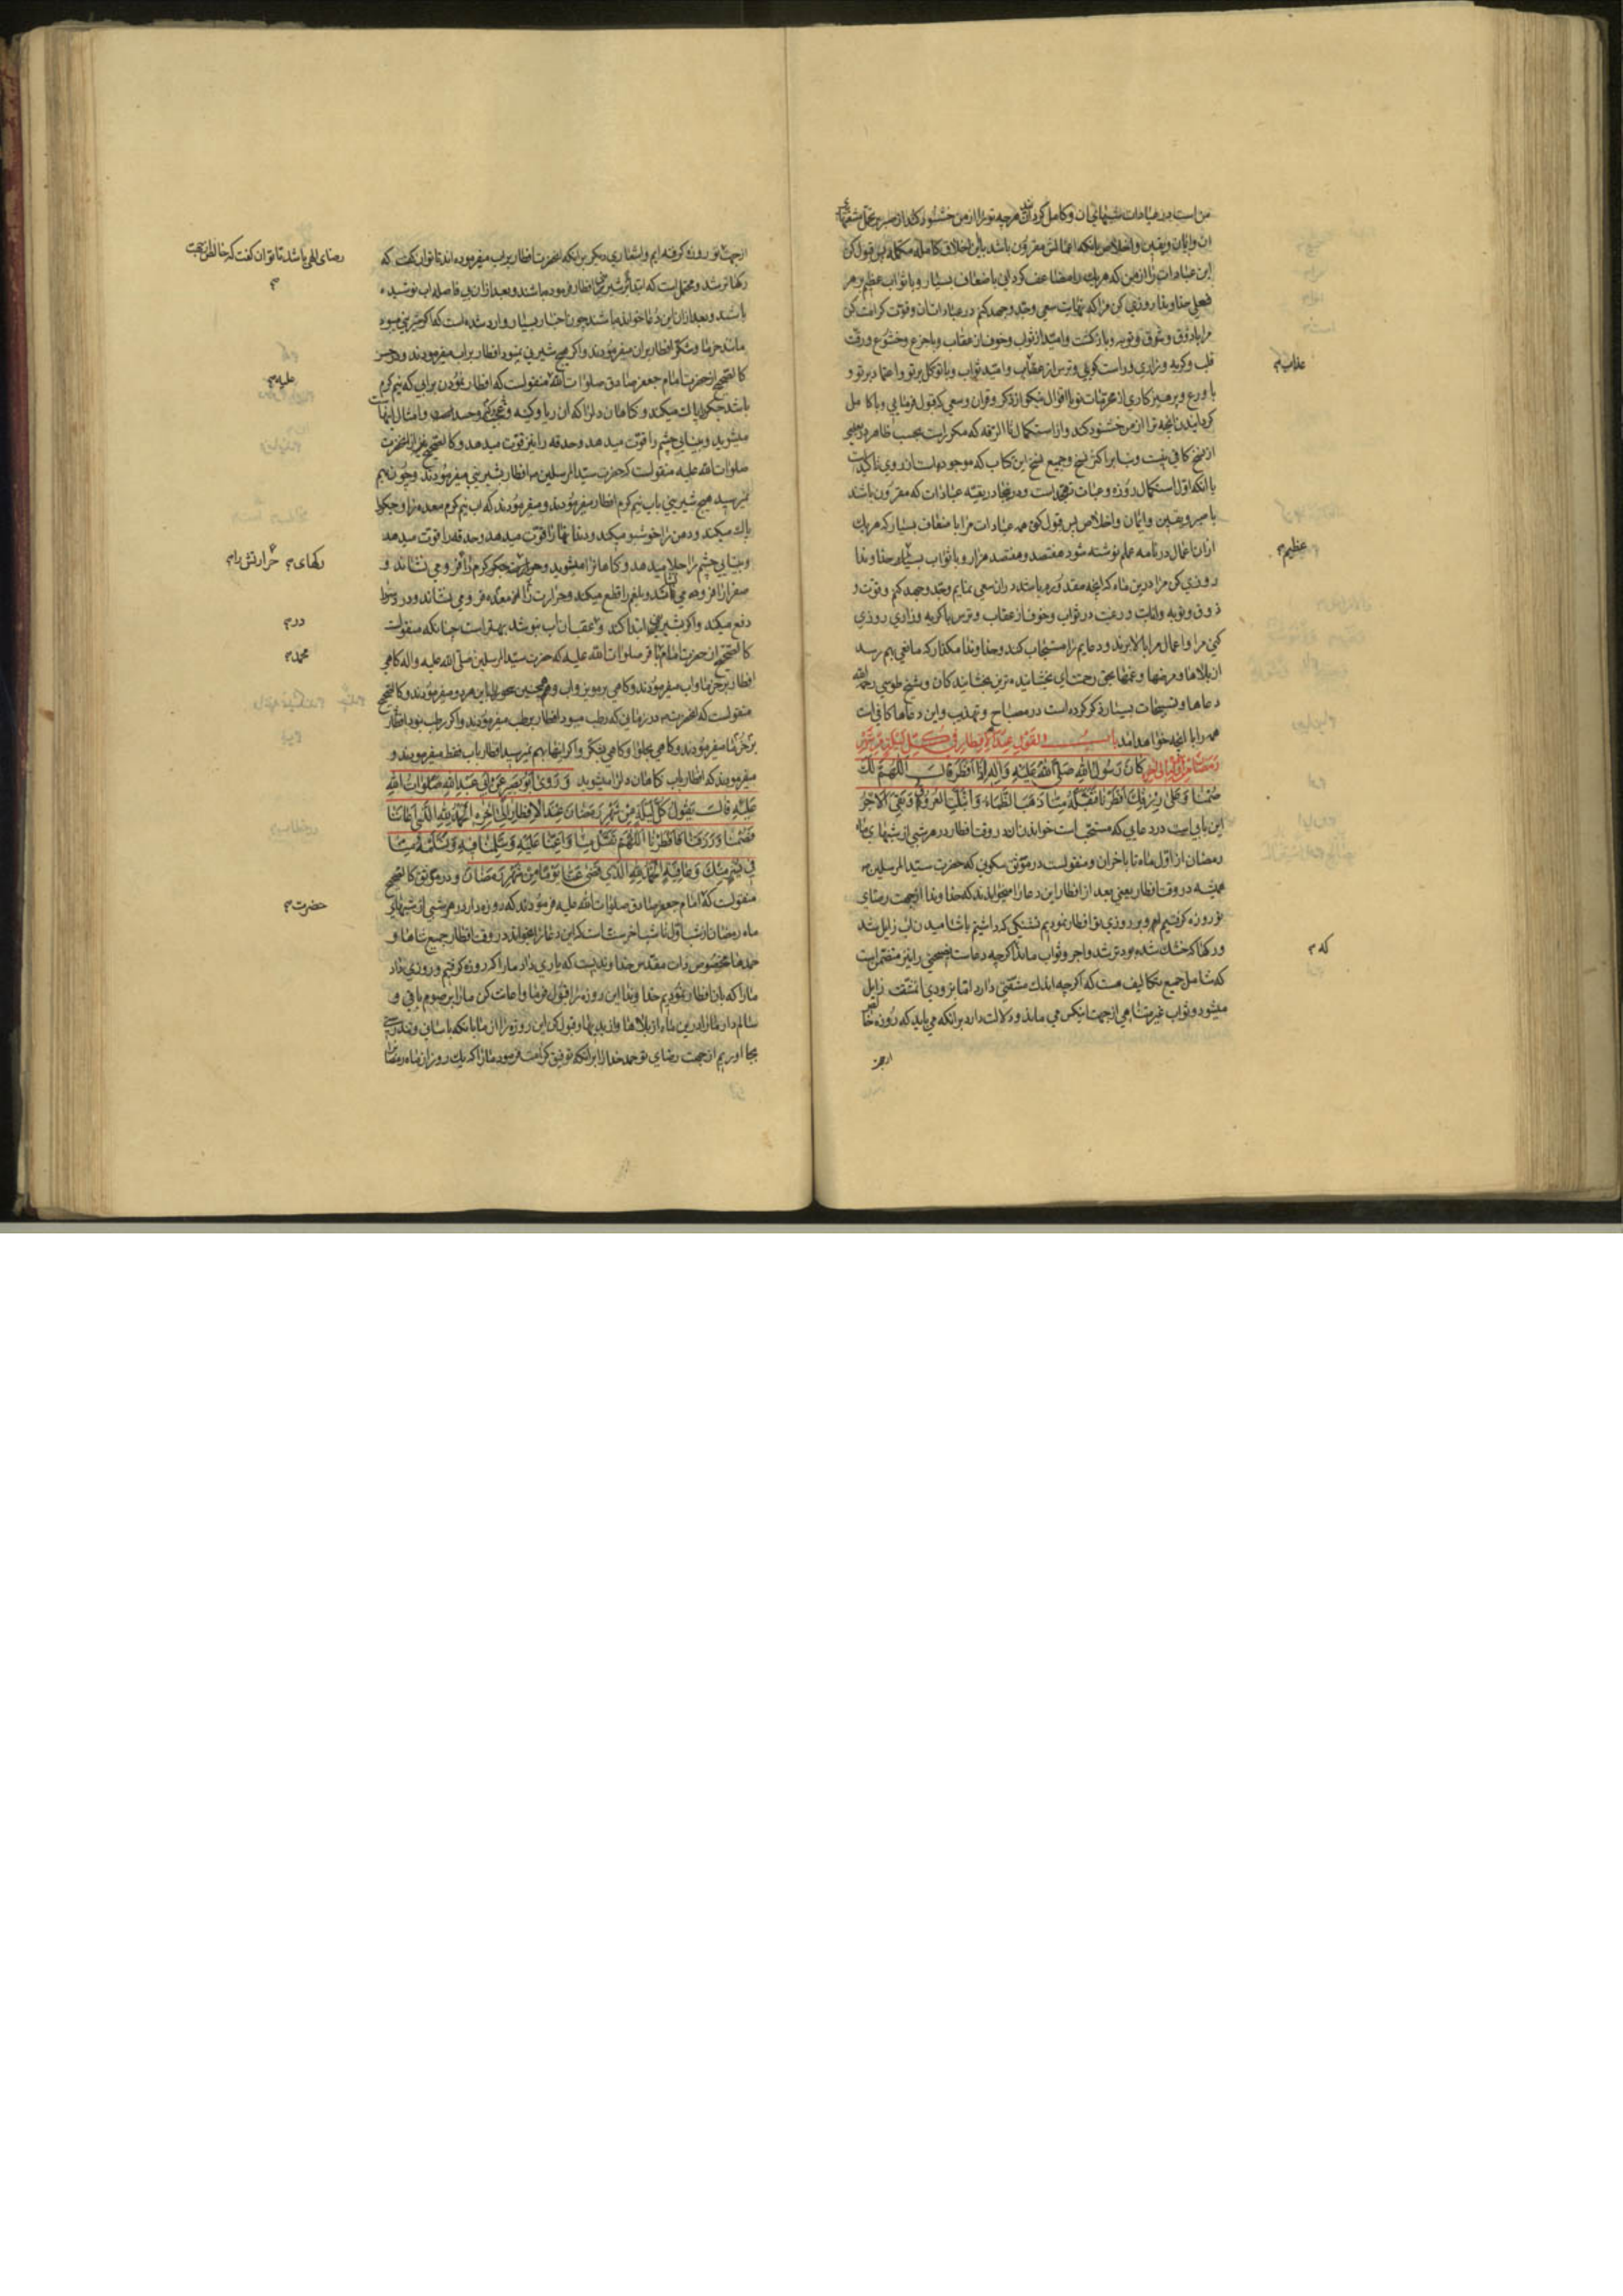 من است در عبادات شبهای ان و کامل کردن هرچه تو را از من خشنود کند از صبر بر تحمل مشقتها
ان و ایمان و یقین و اخلاص بانکه اعمالش مقرون باشد باین اخلاق کامله مکمله پس قبول کن
این عبادات را از من که هر یک را مضاعف کردانی باضعاف بسیار و با ثواب عظیم بر هر
فعلی خداوندا روزی کن مرا که نهایت سعی و جد و جهد کنم در عبادات ان و قوت کرامت کن
مرا با ذوق و شوق و توبه و بازکشت و امید از ثواب و خوف از عقاب و با جزع و خشوع و رقت
قلب و کریه و زاری و راست کویی و ترس از عقاب و امید ثواب و با توکل بر تو و اعتماد بر تو و
با ورع و پرهیزکاری از محرمات تو با اقوال نیکو از ذکر و قران و سعی که قبول فرمایی و با کامل
کردانیدن انچه ترا از من خشنود کند و از استکمال تا الزمه که مکرر است بحسب ظاهر در
از نسخ کافی نیست و بنابر اکثر نسخ و جمیع نسخ این کتاب که موجود است از روی تاکید است
یا انکه اول استکمال روزه و عبادات است و در اینجا در بقیه عبادات که مقرون باشد
با صبر و یقین و ایمان و اخلاص پس قبول کنی همه عبادات مرا با ضعاف بسیار که هر یک
از ان اعمال در نامه عملم نوشته شود هفتصد و هفتصد هزار و با ثواب بسیار خداوندا
روزی کن مرا درین ماه که انچه مقدورم باشد در ان سعی نمایم و جد و جهد کنم و قوت و
ذوق و توبه و انابت و رغبت در ثواب و خوف از عقاب و ترس با کریه و زاری روزی
کنی مرا و اعمال مرا بالا برند و دعایم را مستجاب کند و خداوندا مکذار که مانعی بهم رسد
از بلاها و مرضها و غمها بحق رحمت ای بخشاینده ترین بخشایندکان و شیخ طوسی رحمه الله
دعاها و تسبیحات بسیار ذکر کرده است در مصباح و تهذیب و این دعاها کافی است
همه را با انچه خواهد امد باب القول عند الافطار فی کل لیلة من شهر
رمضان من اوله الی اخره کان رسول الله صلی الله علیه و اله اذا افطر قال اللهم لک
صمنا و علی رزقک افطرنا فتقبله منا ذهب الظماء و ابتلت العروق و بقی الاجر
این بابی است در دعایی که مستحب است خواندن ان در وقت افطار در هر شبی از شبهای ماه
رمضان از اول ماه تا باخر ان و منقولست در موثق سکونی که حضرت سید المرسلین ص
همیشه در وقت افطار یعنی بعد از افطار این دعا را میخواندند که خداوندا از جهت رضای
تو روزه کرفتیم و بر روزی تو افطار نمودیم تشنکی که داشتیم باشامیدن اب زایل شد
و رکها که خشک شده بود تر شد و اجر و ثواب ماند اکرچه دعاست نصیحتی را نیز متضمن است
که شامل جمیع تکالیف هست که اکرچه اندک مشقتی دارد اما بزودی ان مشقت زایل
میشود و ثواب غیر متناهی از جهت اینکس می ماند و دلالت دارد بر انکه می باید که روزه خالص
از جهت
عقاب م
عظیم م
که م
از جهت تو روزه کرفته ایم و اشعاری دیکر بر اینکه انحضرت افطار بر اب میفرموده اند تا توان کفت که
رکها تر شد و محتمل است که ابتدا بر شیرینی افطار فرموده باشند و بعد از ان بی فاصله اب نوشیده
باشند و بعد از ان این دعا خوانده باشند چون اخبار بسیار وارد شده است که اکر شیرینی میبود
مانند خرما و شکر افطار بر ان میفرمودند و اکر هیچ شیرینی نمیبود افطار بر اب میفرمودند و در حسن
کالصحیح از حضرت امام جعفر صادق صلوات الله منقولست که افطار نمودن بر ابی که نیم کرم
باشد جکر را پاک میکند و کناهان دل را که ان ریا و کینه و عجب و حسد است و امثال اینهاست
میشوید و بینایی چشم را قوت میدهد و حدقه را نیز قوت میدهد و کالصحیح نیز از انحضرت
صلوات الله علیه منقولست که حضرت سید المرسلین ص افطار بشیرینی میفرمودند و چون بهم
نمیرسید هیچ شیرینی باب نیم کرم افطار میفرمودند و میفرمودند که اب نیم کرم معده را و جکر را
پاک میکند و دهن را خوشبو میکند و دندانها را قوت میدهد و حدقه را قوت میدهد
و بینایی چشم را جلا میدهد و کناهانرا میشوید و جکر کرم را فرو می نشاند و
صفرا از افزوده می کشد و بلغم را قطع میکند و حرارت را از معده فرو می نشاند و درد سر را
دفع میکند و اکر بشیرینی ابتدا کند و عقب ان اب بنوشد بهتر است چنانکه منقولست
کالصحیح از حضرت امام باقر صلوات الله علیه که حضرت سید المرسلین صلی الله علیه و اله کاهی
افطار بر خرما و اب میفرمودند و کاهی بر مویز و اب و همچنین سحور را باین هر دو میفرمودند و کالصحیح
منقولست که انحضرت ص در زمانی که رطب میبود افطار بر رطب میفرمودند و اکر رطب نبود افطار
بر خرما میفرمودند و کاهی بحلوا و کاهی بشکر و اکر اینها بهم نمیرسید افطار باب فقط میفرمودند و
میفرمودند که افطار باب کناهان دل را میشوید و روی ابو بصیر عن ابی عبد الله صلوات الله
علیه قال تقول کل لیلة من شهر رمضان عند الافطار الی اخره الحمد لله الذی اعاننا
فصمنا و رزقنا فافطرنا اللهم تقبل منا و اعنا علیه و سلمنا فیه و تسلمه منا
فی یسر منک و عافیة الحمد لله الذی قضی عنا یوما من شهر رمضان و در موثق کالصحیح
منقولست که امام جعفر صادق صلوات الله علیه فرمودند که روزه دار در هر شبی از شبهای
ماه رمضان از شب اول تا شب اخر سنت است که این دعا را بخواند در وقت افطار جمیع ثناها و
حمدها مخصوص ذات مقدس خداوندیست که یاری داد ما را که روزه کرفتیم و روزی داد
ما را که بان افطار نمودیم خداوندا این روزه را قبول فرما و اعانت کن ما را بر صوم باقی و
سالم دار ما را درین ماه از بلاها و از بدیها و قبول کن این روزه را از ما بانکه باسانی و تندرستی
بجا اوریم از جهت رضای تو حمد خدا را بر انکه توفیق کرامت فرمود ما را که یک روز از ماه رمضان
رضای الهی باشد تا توان کفت که خالص از جهت
م
علیه م
رکهای م حرارتش را م
در م
محمد م
حضرت م